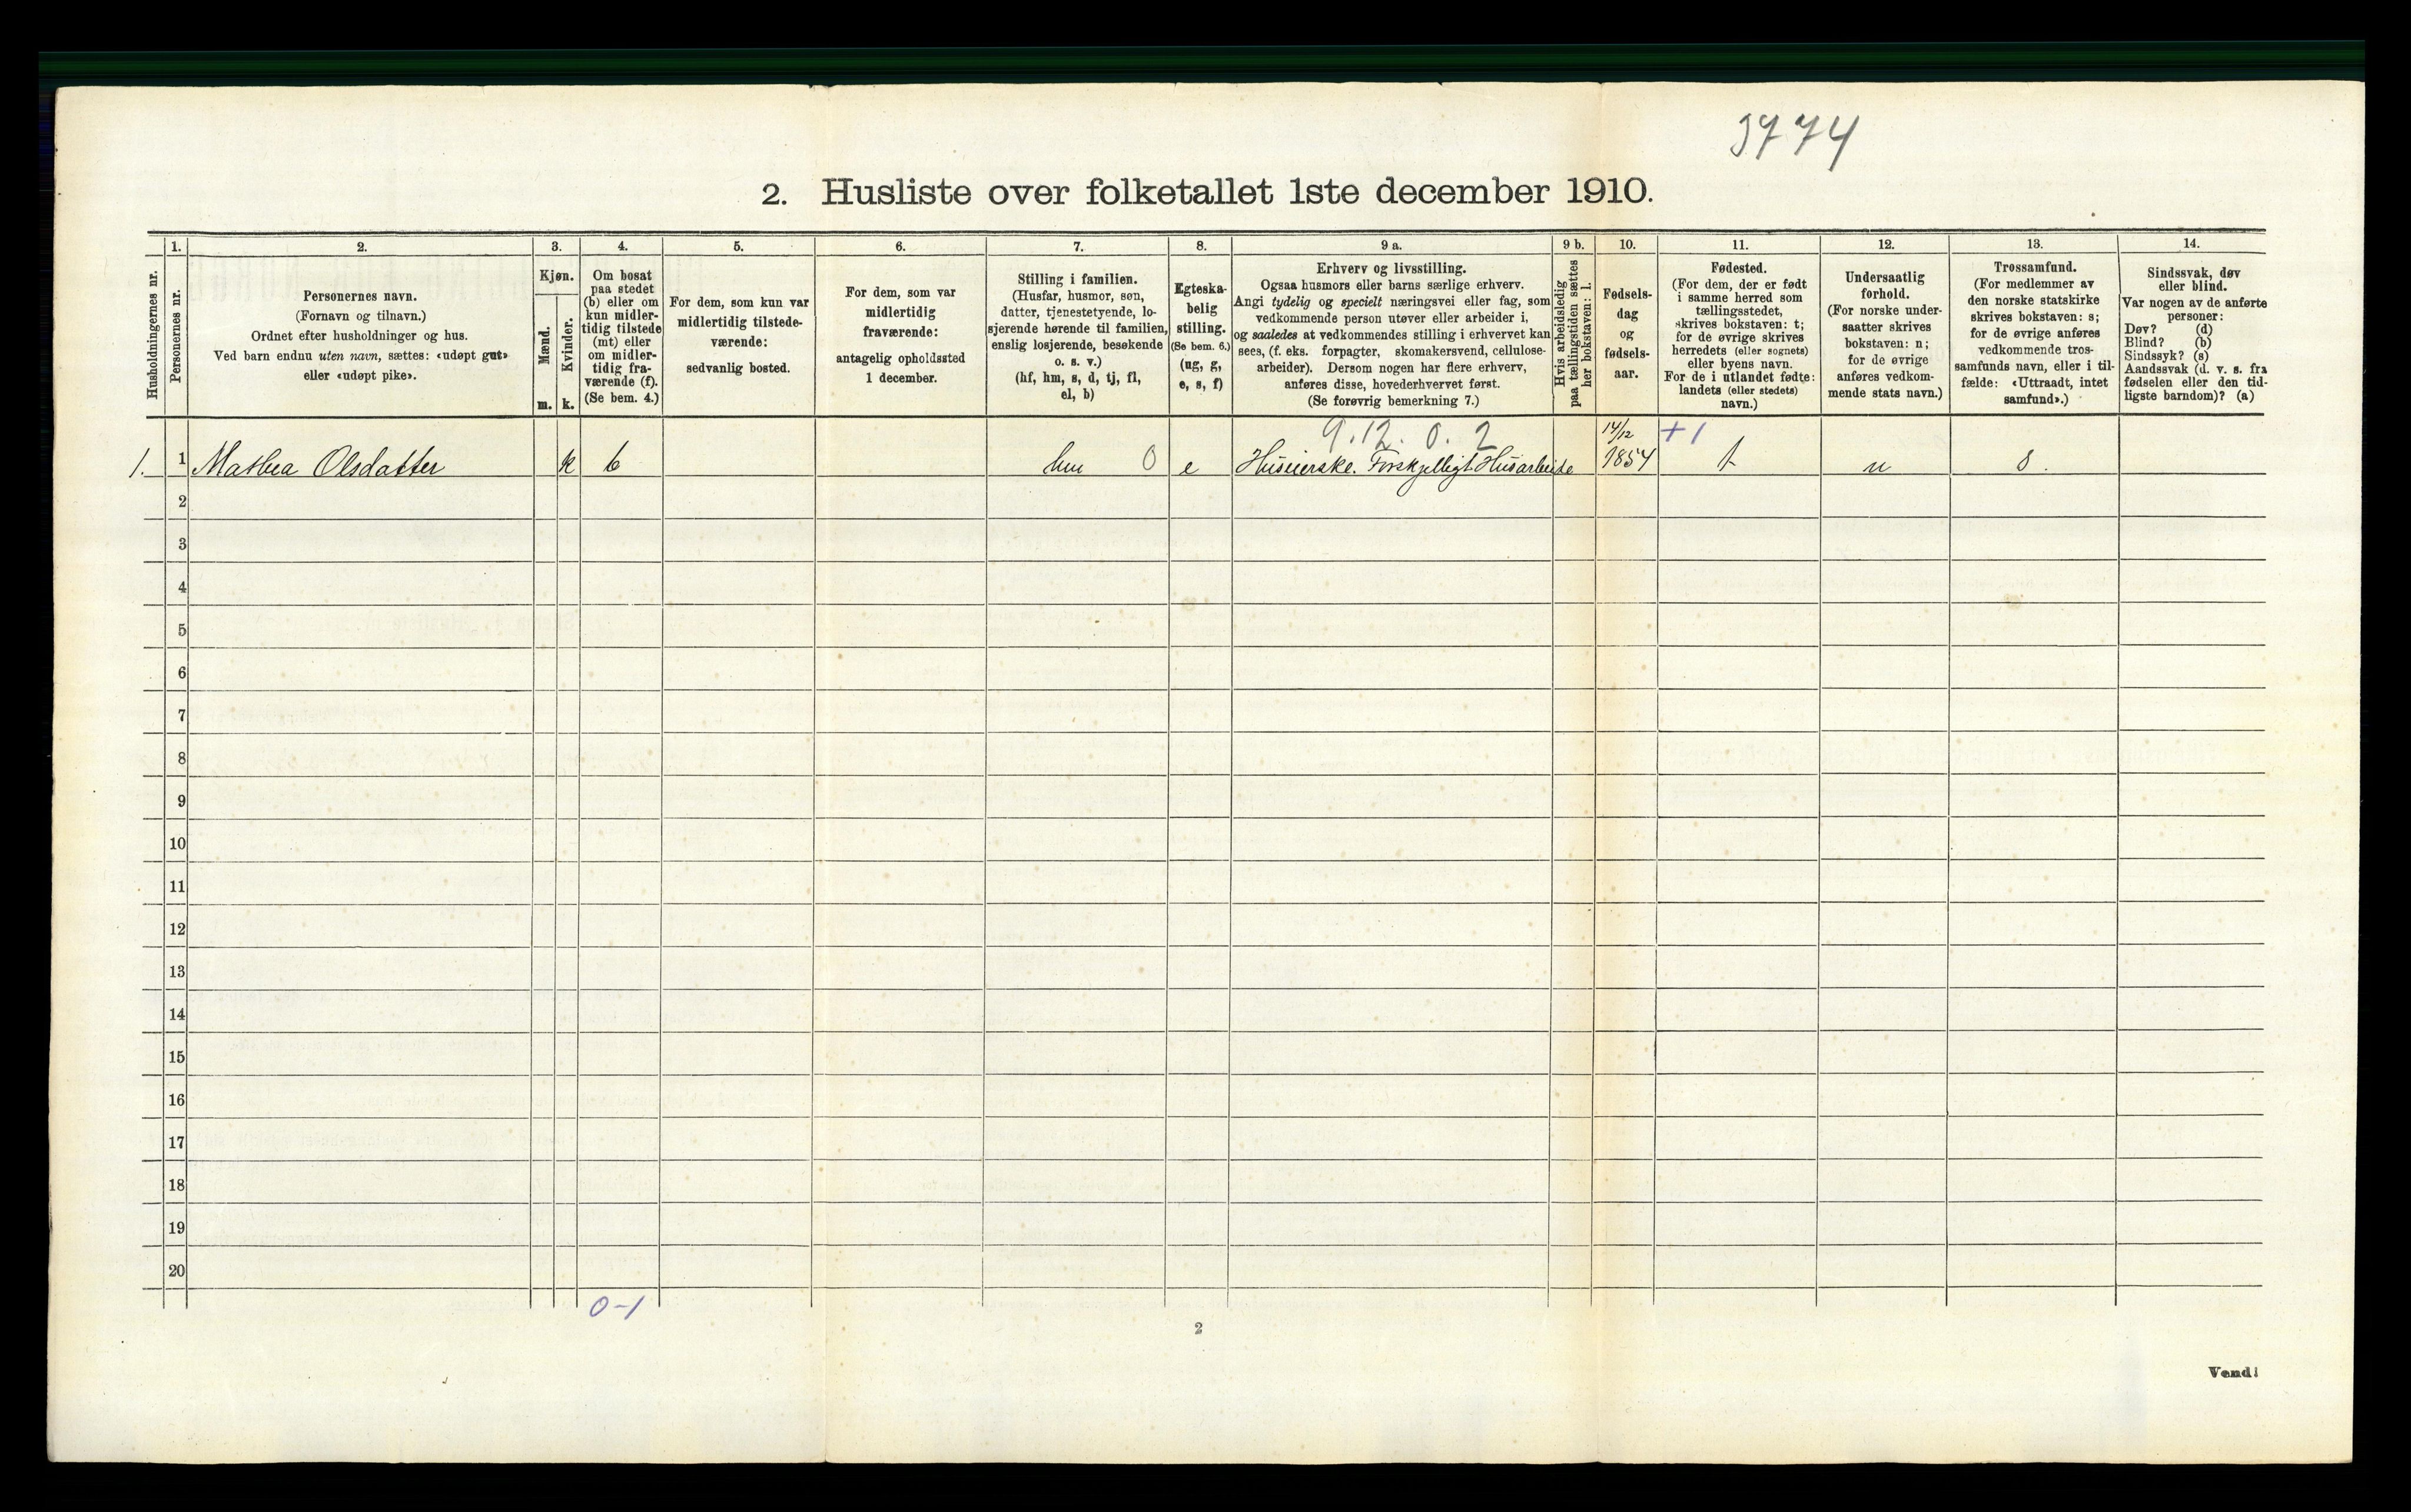 3774
2. Husliste over folketallet 1ste december 1910.
Husholdningernes nr.
1.
Personernes nr.
2.
Personernes navn.
(Fornavn og tilnavn.)
Ordnet efter husholdninger og hus.
Ved barn endnu uten navn, sættes: «udøpt gut»
eller «udøpt pike».
3.
Kjøn.
Mænd.
m.
Kvinder.
k.
4.
Om bosat
paa stedet
(b) eller om
kun midler-
tidig tilstede
(mt) eller
om midler-
tidig fra-
værende (f).
(Se bem. 4.)
5.
For dem, som kun var
midlertidig tilstede-
værende:
sedvanlig bosted.
6.
For dem, som var
midlertidig
fraværende:
antagelig opholdssted
1 december.
7.
Stilling i familien.
(Husfar, husmor, søn,
datter, tjenestetyende, lo-
sjerende hørende til familien,
enslig losjerende, besøkende
o. s. v.)
(hf, hm, s, d, tj, fl,
el, b)
8.
Egteska-
belig
stilling.
(Se bem. 6.)
(ug, g,
e, s, f)
9 a.
Erhverv og livsstilling.
Ogsaa husmors eller barns særlige erhverv.
Angi tydelig og specielt næringsvei eller fag, som
vedkommende person utøver eller arbeider i,
og saaledes at vedkommendes stilling i erhvervet kan
sees, (f. eks. forpagter, skomakersvend, cellulose-
arbeider). Dersom nogen har flere erhverv,
anføres disse, hovederhvervet først.
(Se forøvrig bemerkning 7.)
9 b.
Hvis arbeidsledig
paa tællingstiden sættes
her bokstaven: l.
10.
Fødsels-
dag
og
fødsels-
aar.
11.
Fødested.
(For dem, der er født
i samme herred som
tællingsstedet,
skrives bokstaven: t;
for de øvrige skrives
herredets (eller sognets)
eller byens navn.
For de i utlandet fødte:
landets (eller stedets)
navn.)
12.
Undersaatlig
forhold.
(For norske under-
saatter skrives
bokstaven: n;
for de øvrige
anføres vedkom-
mende stats navn.)
13.
Trossamfund.
(For medlemmer av
den norske statskirke
skrives bokstaven: s;
for de øvrige anføres
vedkommende tros-
samfunds navn, eller i til-
fælde: «Uttraadt, intet
samfund».)
14.
Sindssvak, døv
eller blind.
Var nogen av de anførte
personer:
Døv? (d)
Blind? (b)
Sindssyk? (s)
Aandssvak (d. v. s. fra
fødselen eller den tid-
ligste barndom)? (a)
9.12. 0. 2
14/12
+1
1. 1 Mathea Olsdatter k b hm 0 e Huseierske. Forskjelligt Husarbeide 1854 t n s.
2
3
4
5
6
7
8
9
10
11
12
13
14
15
16
17
18
19
20
0-1
2
Vend!